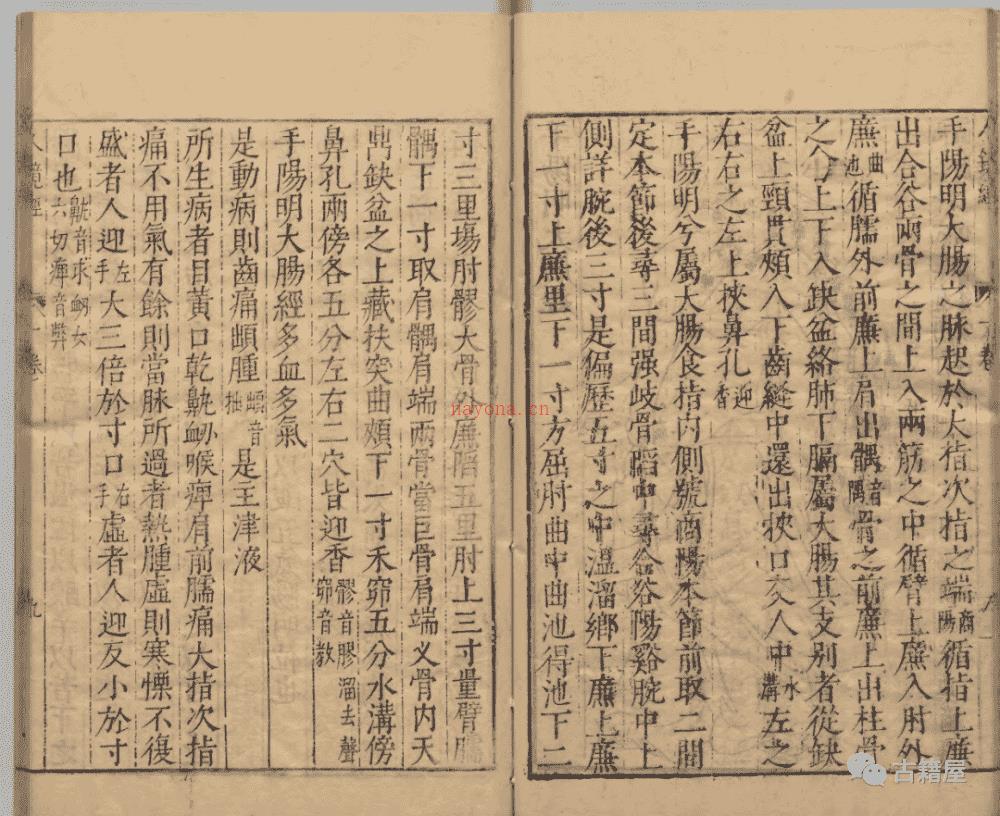 手陽明大腸之脉起於大指次指之端商陽循指上廉
出合谷兩骨之間上入兩筋之中循臂上廉入肘外
廉曲池循臑外前廉上肩出髃音隅骨之前廉上出柱骨
之會上下入缺盆絡肺下膈屬大腸其支別者從缺
盆上頸貫頰入下齒縫中還出挾口交人中水溝左之
右右之左上挾鼻孔迎香
手陽明兮屬大腸食指內側號商陽本節前取二間
定本節後尋三間强岐骨陷中尋合谷陽谿腕中上
側詳腕後三寸是偏歷五寸之中溫溜鄉下廉上廉
下一寸上廉里下一寸方屈肘曲中曲池得池下二
寸三里場肘髎大骨外廉陷五里肘上三寸量臂臑
髃下一寸取肩髃肩端兩骨當巨骨肩端义骨內天
鼎缺盆之上藏扶突曲頰下一寸禾窌五分水溝傍
鼻孔兩傍各五分左右二穴皆迎香髎音膠溜去聲窌音教
手陽明大腸經多血多氣
是動病則齒痛䪼腫䪼音拙是主津液
所生病者目黃口乾鼽衂喉痺肩前臑痛大指次指
痛不用氣有餘則當脉所過者熱腫虛則寒慄不復
盛者人迎左手大三倍於寸口右手虛者人迎反小於寸
口也鼽音求衂女六切痺音弊
人鏡經
卷一
九
hayona.cn
古籍屋